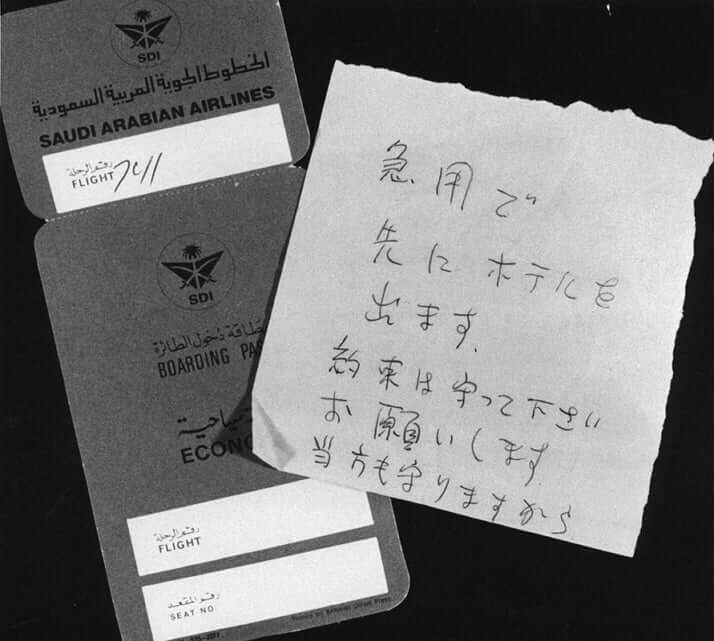 SDI
الخطوط الجوية العربية السعودية
SAUDI ARABIAN AIRLINES
رقم الرحلة
FLIGHT
SDI
بطاقة دخول الطائرة
BOARDING PAS
سياحية
ECONO
رقم الرحلة
FLIGHT
رقم المقعد
SEAT NO
急用で
先にホテルを
出ます.
約束は守って下さい
お願いします
当方も守りますから